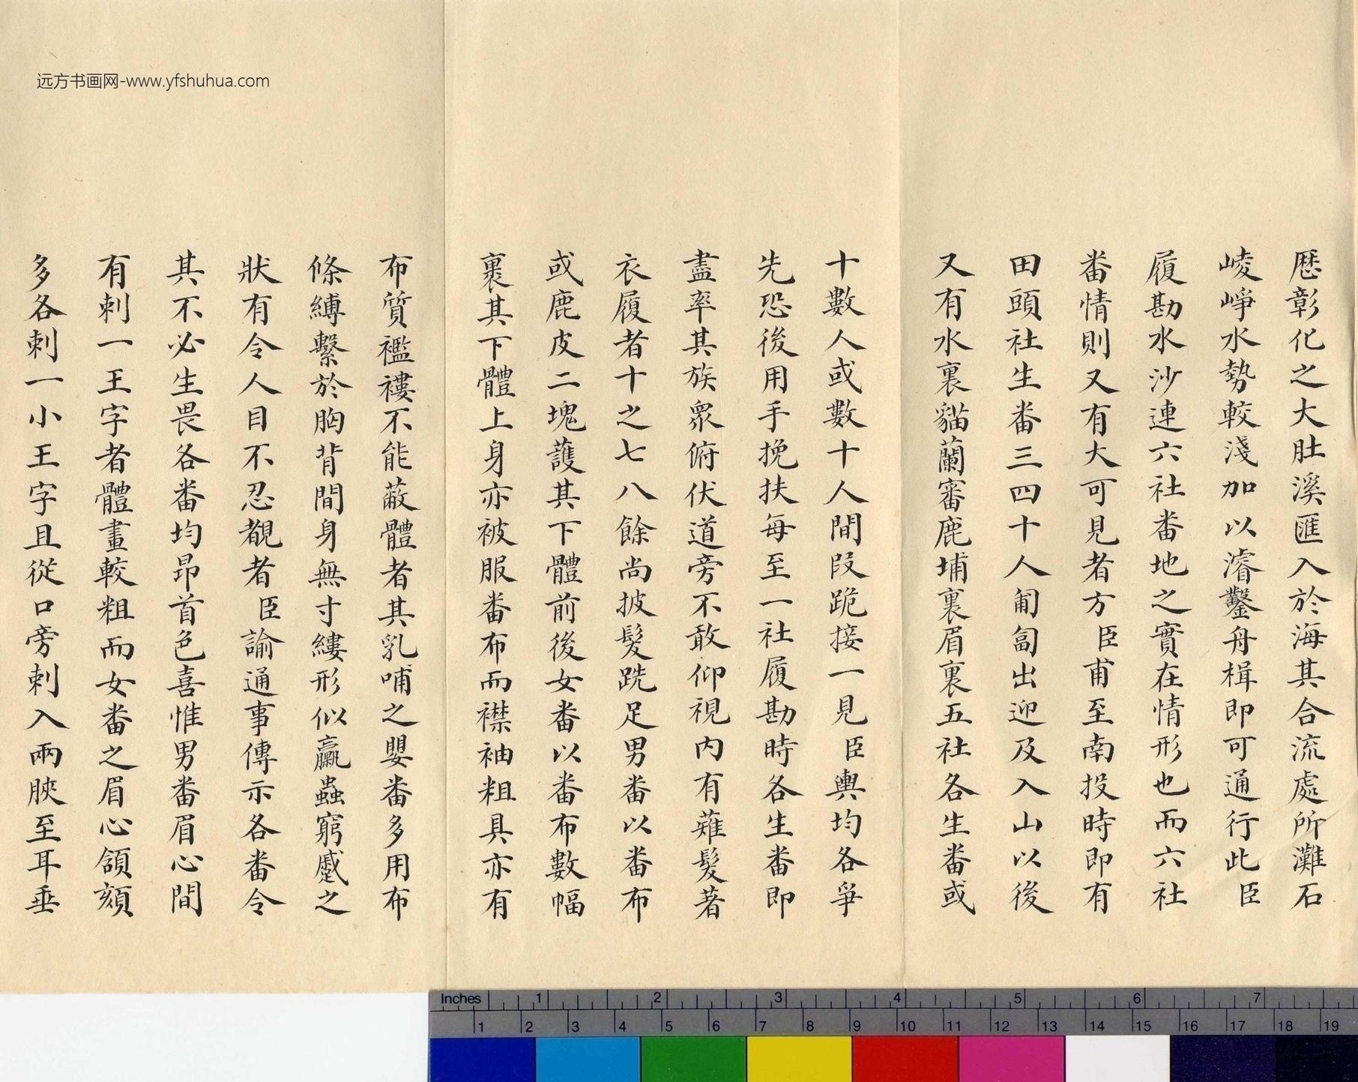 远方书画网-www.yfshuhua.com
歷彰化之大肚溪匯入於海其合流處所灘石
崚崢水勢較淺加以濬鑿舟楫即可通行此臣
履勘水沙連六社番地之實在情形也而六社
番情則又有大可見者方臣甫至南投時即有
田頭社生番三四十人匍匐出迎及入山以後
又有水裏貓蘭審鹿埔裏眉裏五社各生番或
十數人或數十人間段跪接一見臣輿均各爭
先恐後用手挽扶每至一社履勘時各生番即
盡率其族眾俯伏道旁不敢仰視內有薙髮著
衣履者十之七八餘尚披髮跣足男番以番布
或鹿皮二塊護其下體前後女番以番布數幅
裹其下體上身亦被服番布而襟袖粗具亦有
布質襤褸不能蔽體者其乳哺之嬰番多用布
條縛繫於胸背間身無寸縷形似蠃蟲窮蹙之
狀有令人目不忍覩者臣諭通事傳示各番令
其不必生畏各番均昂首色喜惟男番眉心間
有刺一王字者體畫較粗而女番之眉心頷頦
多各刺一小王字且從口旁刺入兩腴至耳垂
Inches 1 2 3 4 5 6 7
1 2 3 4 5 6 7 8 9 10 11 12 13 14 15 16 17 18 19